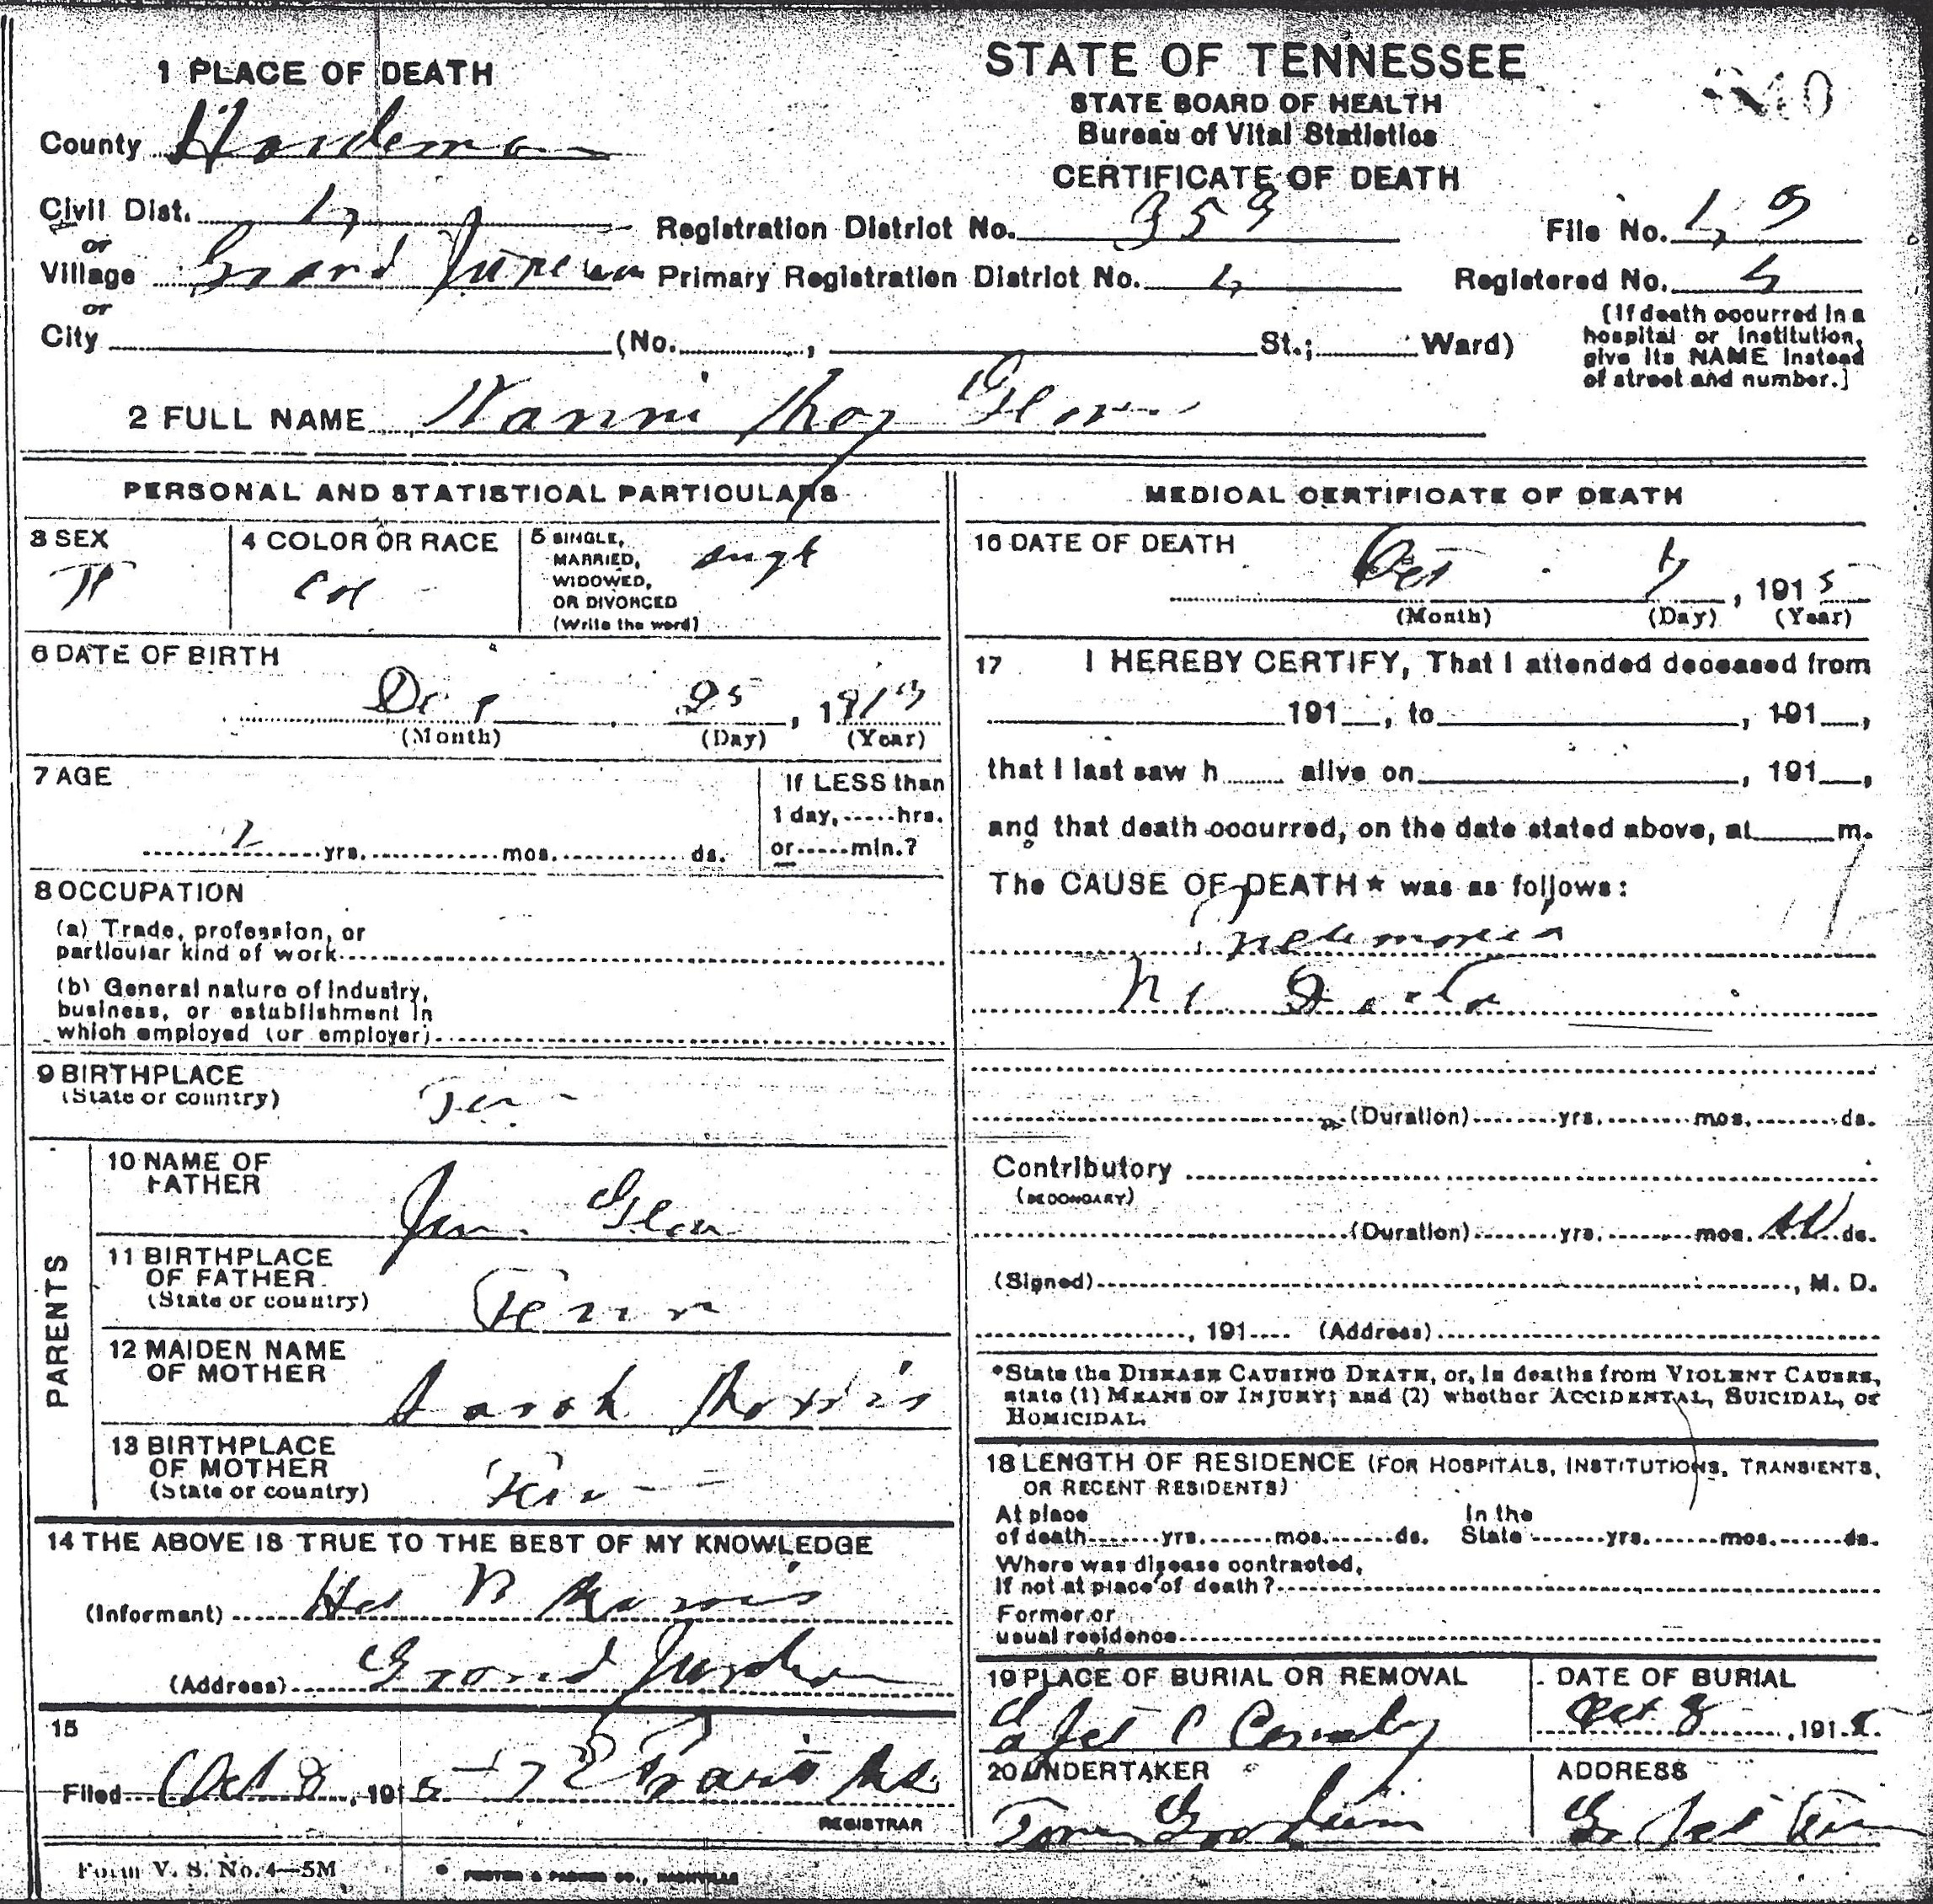 1 PLACE OF DEATH
STATE OF TENNESSEE
STATE BOARD OF HEALTH
Bureau of Vital Statistics
CERTIFICATE OF DEATH
County Hardeman
Civil Dist. 4
Registration District No. 353
File No. 49
or
Village Grand Junction
Primary Registration District No. 4
Registered No.
or
City (No. , St.; Ward)
[If death occurred in a
hospital or institution,
give its NAME instead
of street and number.]
2 FULL NAME Nannie May Glenn
PERSONAL AND STATISTICAL PARTICULARS
3 SEX
4 COLOR OR RACE
Col
5 SINGLE,
MARRIED,
WIDOWED,
OR DIVORCED
(Write the word)
singl
6 DATE OF BIRTH
Dec 25, 1913
(Month) (Day) (Year)
7 AGE
2 yrs. mos. ds.
If LESS than
1 day, hrs.
or min.?
8 OCCUPATION
(a) Trade, profession, or
particular kind of work
(b) General nature of Industry,
business, or establishment in
which employed (or employer)
9 BIRTHPLACE
(State or country)
Tenn
PARENTS
10 NAME OF
FATHER
Glenn
11 BIRTHPLACE
OF FATHER
(State or country)
Tenn
12 MAIDEN NAME
OF MOTHER
Sarah Morris
13 BIRTHPLACE
OF MOTHER
(State or country)
Tenn
14 THE ABOVE IS TRUE TO THE BEST OF MY KNOWLEDGE
(Informant) Morris
(Address) Grand Junction
15
Filed Oct 8, 1915
REGISTRAR
Form V. S. No. 4—5M
FOSTER & PARKES CO., NASHVILLE
MEDICAL CERTIFICATE OF DEATH
16 DATE OF DEATH
Oct 7, 1915
(Month) (Day) (Year)
17 I HEREBY CERTIFY, That I attended deceased from
191 , to , 191 ,
that I last saw h alive on , 191 ,
and that death occurred, on the date stated above, at m.
The CAUSE OF DEATH* was as follows:
pneumonia
(Duration) yrs. mos. ds.
Contributory
(SECONDARY)
(Duration) yrs. mos. ds.
(Signed) , M. D.
, 191 (Address)
*State the DISEASE CAUSING DEATH, or, in deaths from VIOLENT CAUSES,
state (1) MEANS OF INJURY; and (2) whether ACCIDENTAL, SUICIDAL, or
HOMICIDAL.
18 LENGTH OF RESIDENCE (FOR HOSPITALS, INSTITUTIONS, TRANSIENTS,
OR RECENT RESIDENTS)
At place
of death yrs. mos. ds.
In the
State yrs. mos. ds.
Where was disease contracted,
If not at place of death?
Former or
usual residence
19 PLACE OF BURIAL OR REMOVAL
DATE OF BURIAL
Oct 8, 1915
20 UNDERTAKER
Goodwin
ADDRESS